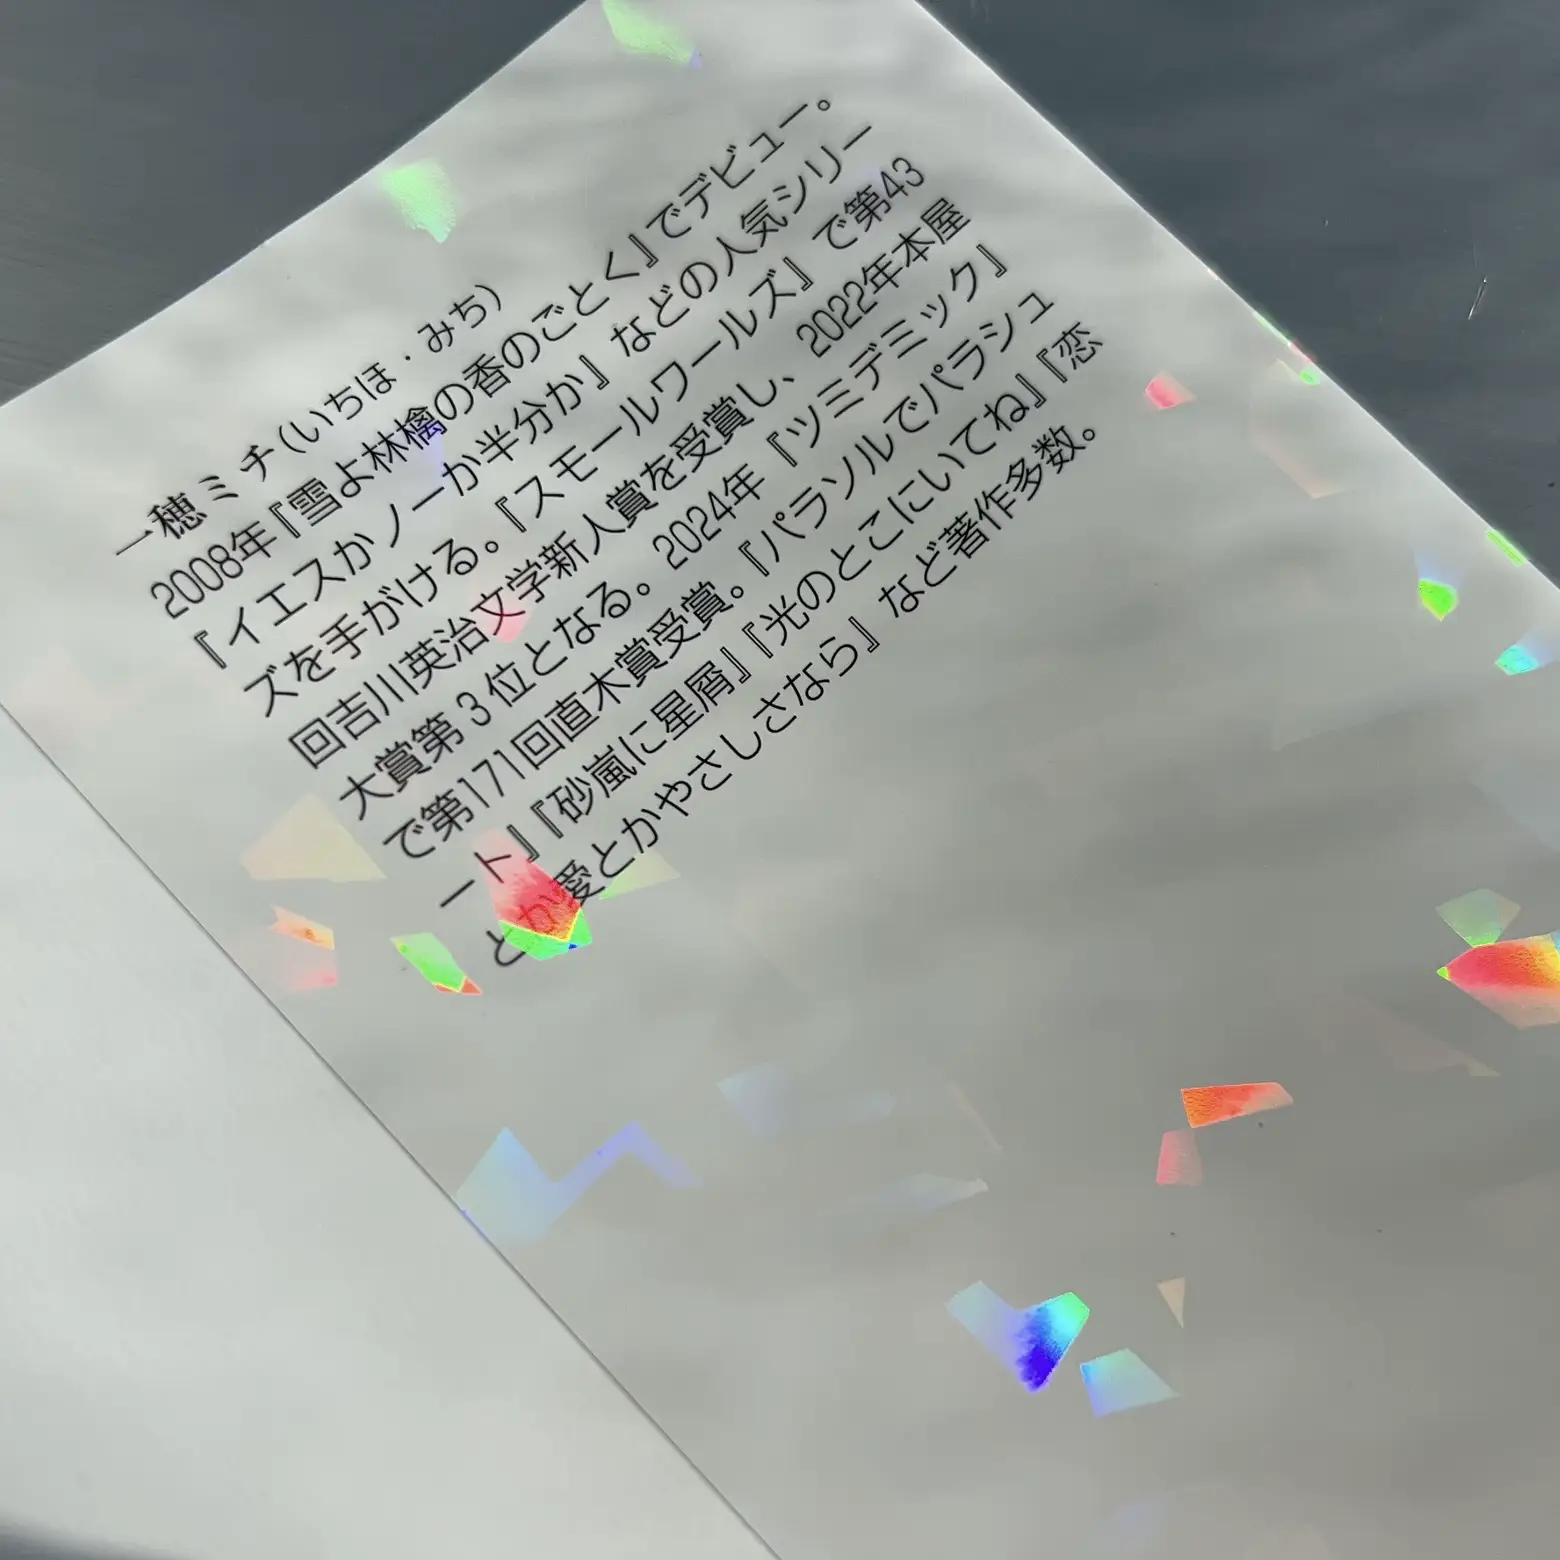 一穂ミチ（いちほ・みち）
2008年『雪よ林檎の香のごとく』でデビュー。
『イエスかノーか半分か』などの人気シリー
ズを手がける。『スモールワールズ』で第43
回吉川英治文学新人賞を受賞し、2022年本屋
大賞第3位となる。2024年『ツミデミック』
で第171回直木賞受賞。『パラソルでパラシュ
ート』『砂嵐に星屑』『光のとこにいてね』『恋
とか愛とかやさしさなら』など著作多数。